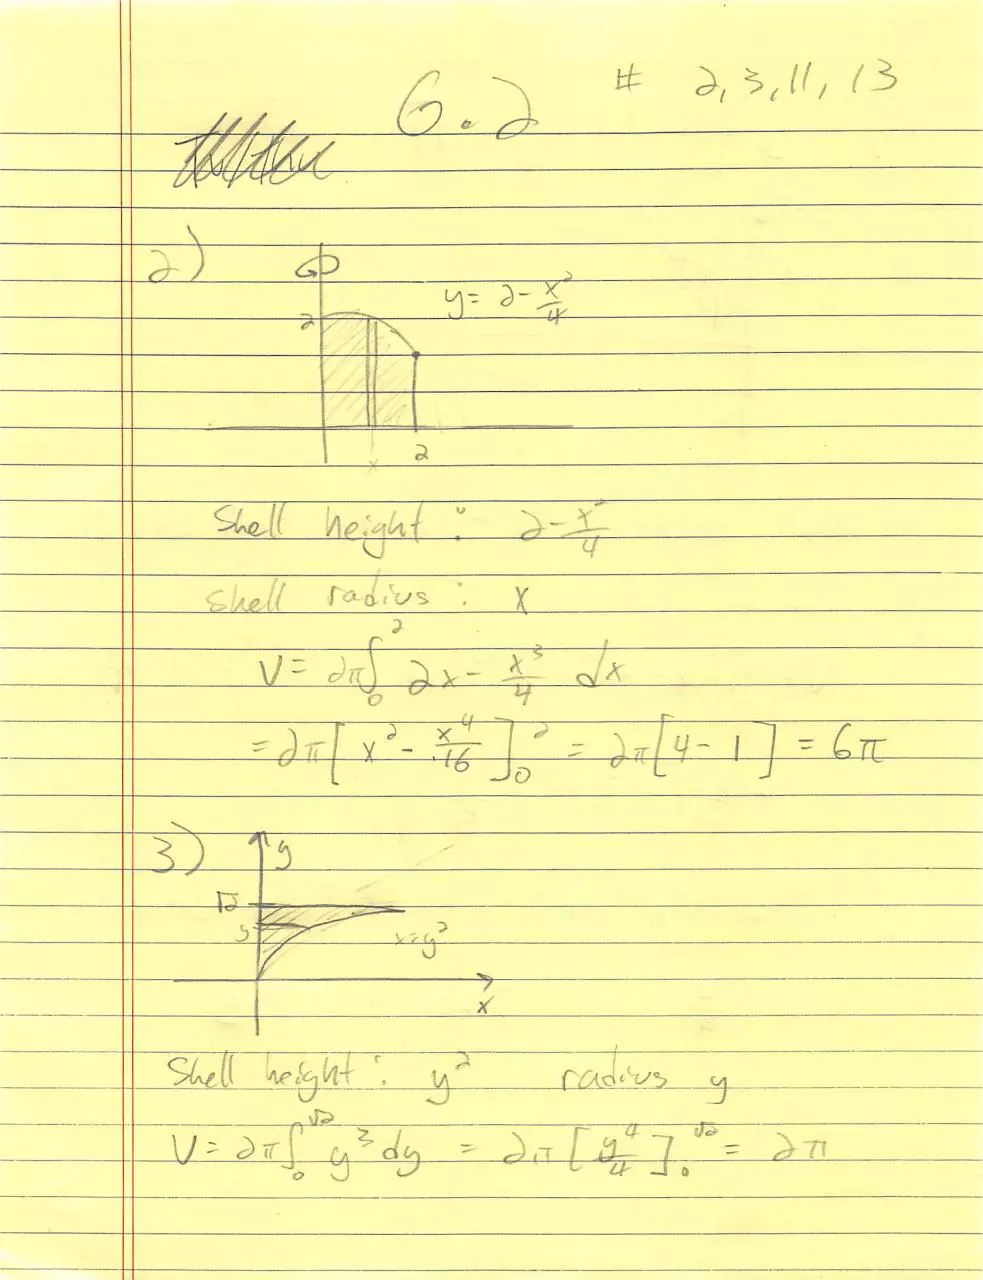 6.2 # 2, 3, 11, 13
2)
y = 2 - x²/4
2
x 2
Shell height: 2 - x²/4
Shell radius: x
V = 2π∫₀² 2x - x³/4 dx
= 2π[x² - x⁴/16]₀² = 2π[4 - 1] = 6π
3) y
√2
y x=y²
x
Shell height: y² radius y
V = 2π∫₀^√2 y³ dy = 2π[y⁴/4]₀^√2 = 2π